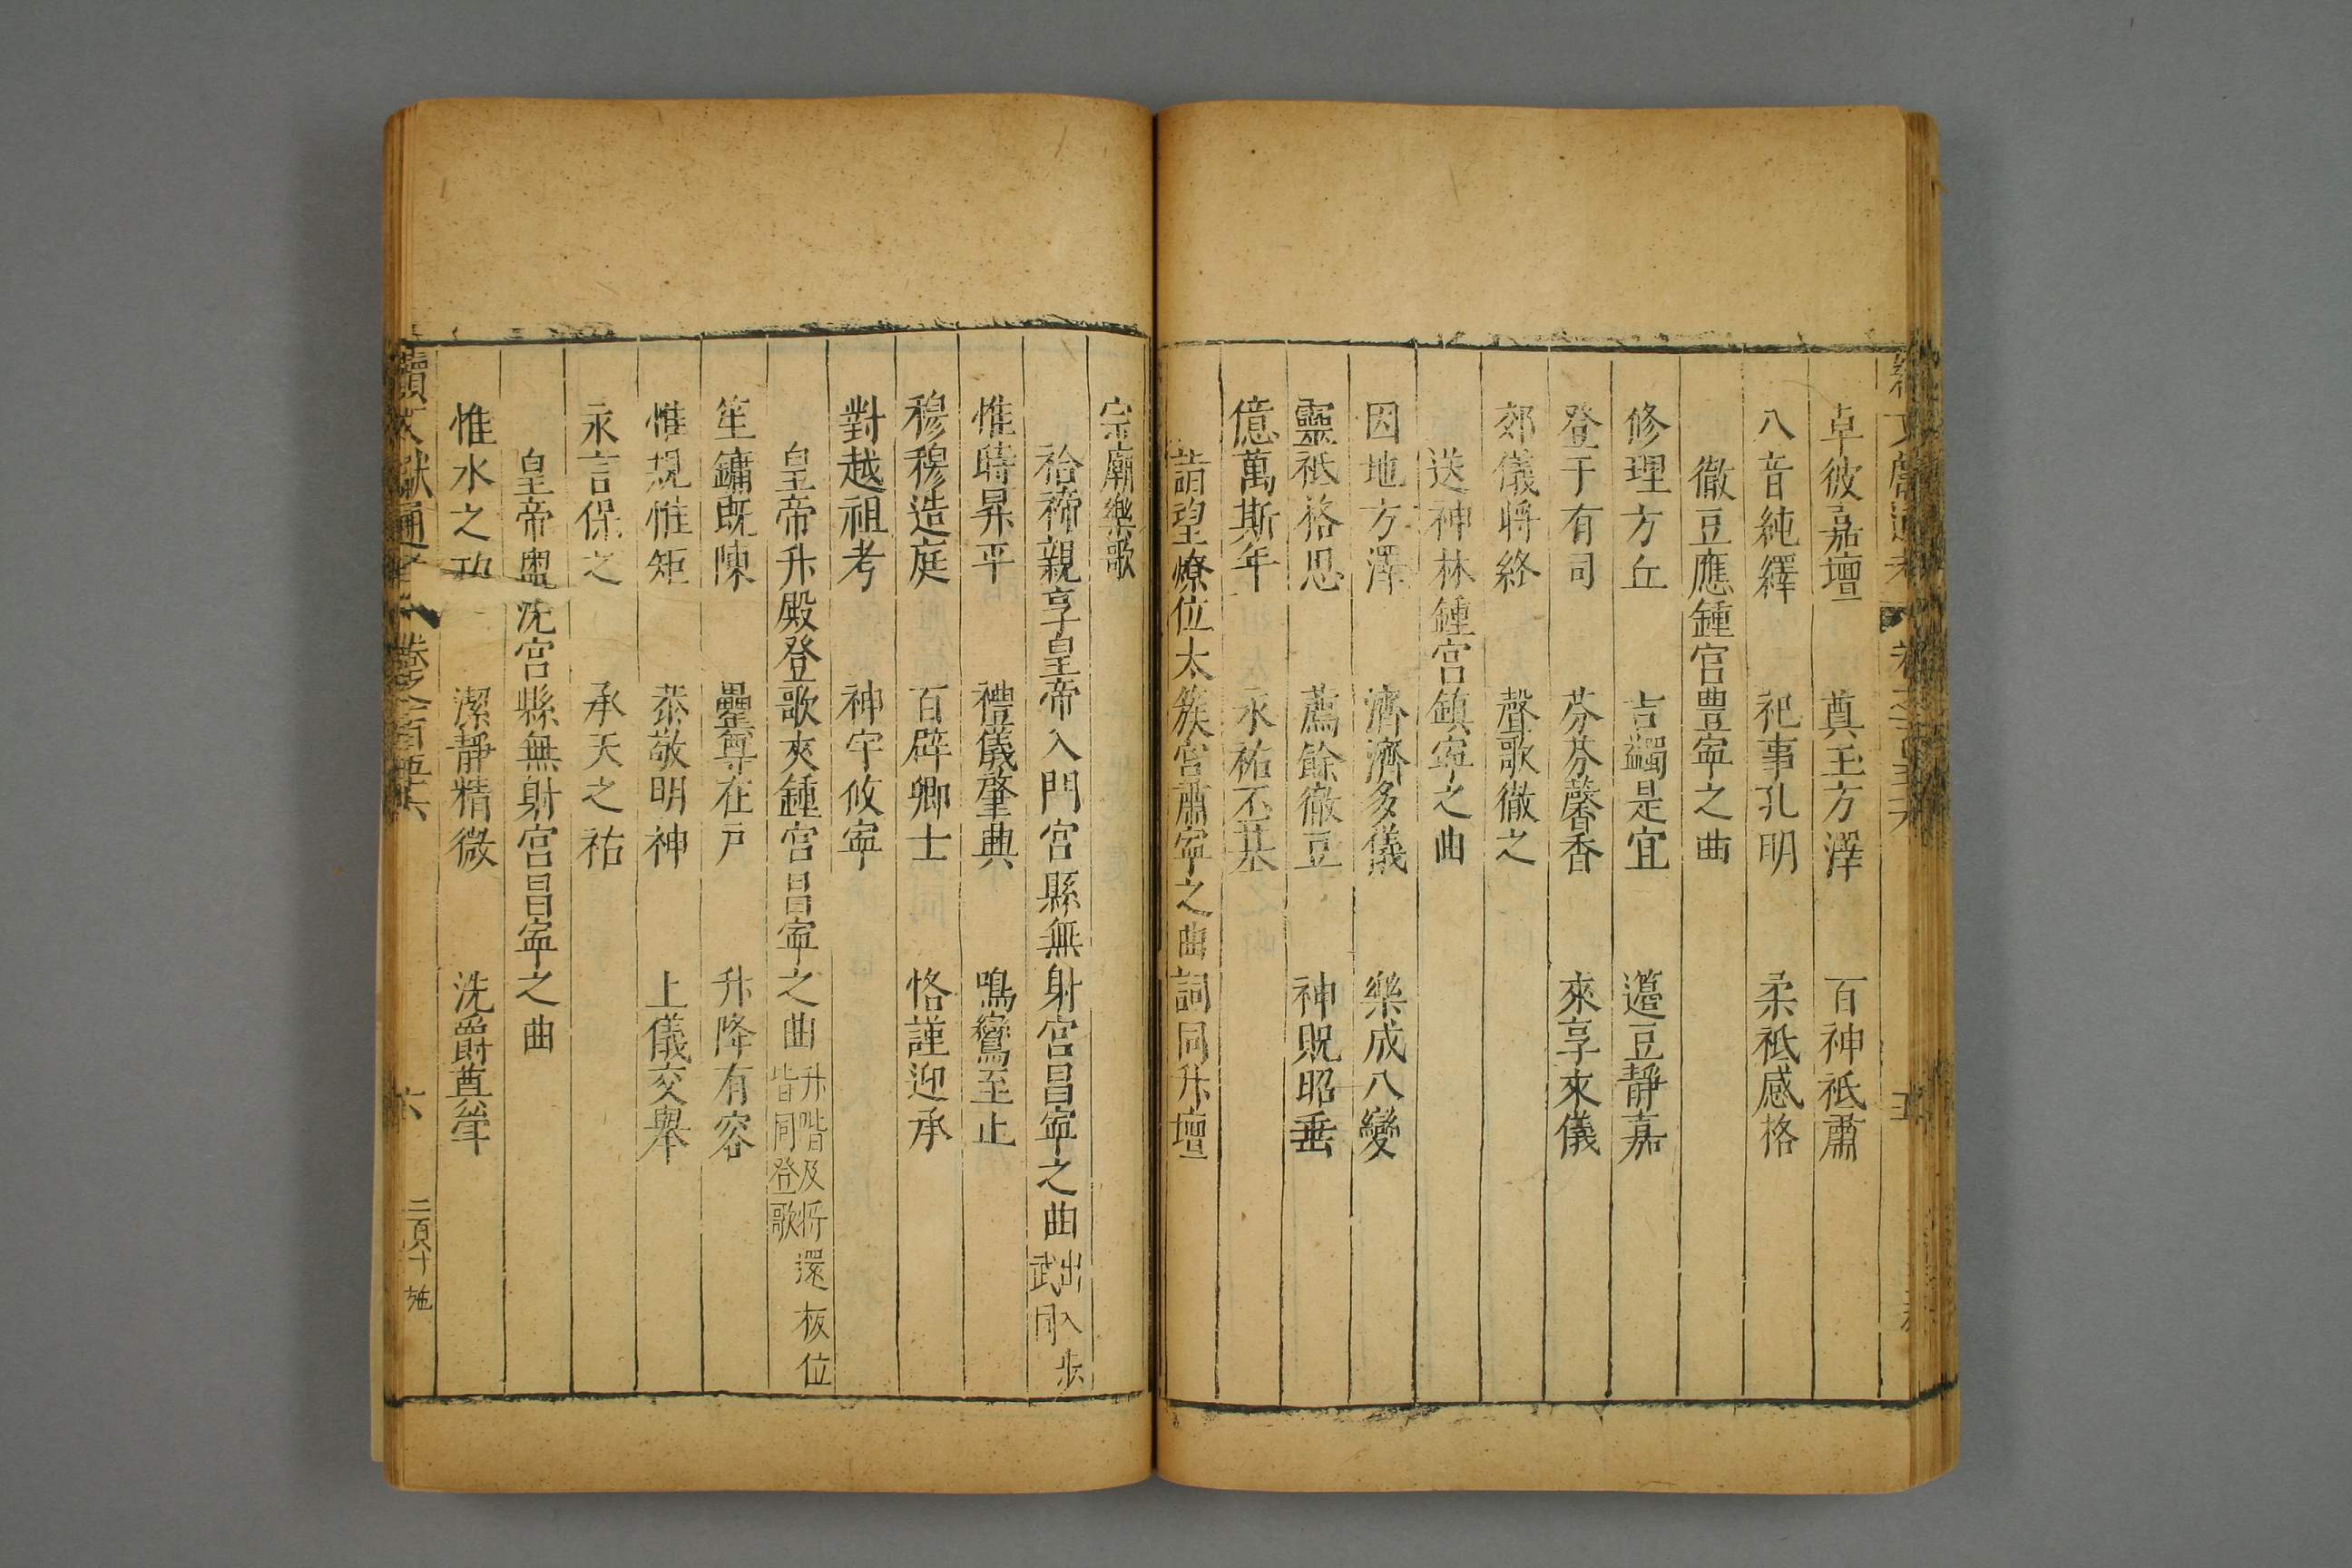 卓彼嘉壇 奠玉方澤 百神祗肅
八音純繹 祀事孔明 柔祗感格
徹豆應鍾宮豐寧之曲
修理方丘 吉蠲是宜 籩豆靜嘉
登于有司 芬芬馨香 來享來儀
郊儀將終 聲歌徹之
送神林鍾宮鎮寧之曲
因地方澤 濟濟多儀 樂成八變
靈祗格思 薦餘徹豆 神貺昭垂
億萬斯年 永祐丕基
詣望燎位太簇宮肅寧之曲詞同升壇
宗廟樂歌
祫禘親享皇帝入門宮縣無射宮昌寧之曲 出入步武同
惟時昇平 禮儀肇典 鳴鸞至止
穆穆造庭 百辟卿士 恪謹迎承
對越祖考 神宇攸寧
皇帝升殿登歌夾鍾宮昌寧之曲 升階及將還板位皆同登歌
笙鏞既陳 罍尊在戶 升降有容
惟規惟矩 恭敬明神 上儀交舉
永言保之 承天之祐
皇帝盥洗宮縣無射宮昌寧之曲
惟水之功 潔靜精微 洗爵奠斝
續文獻通考 卷之一百五十六 六 二百十